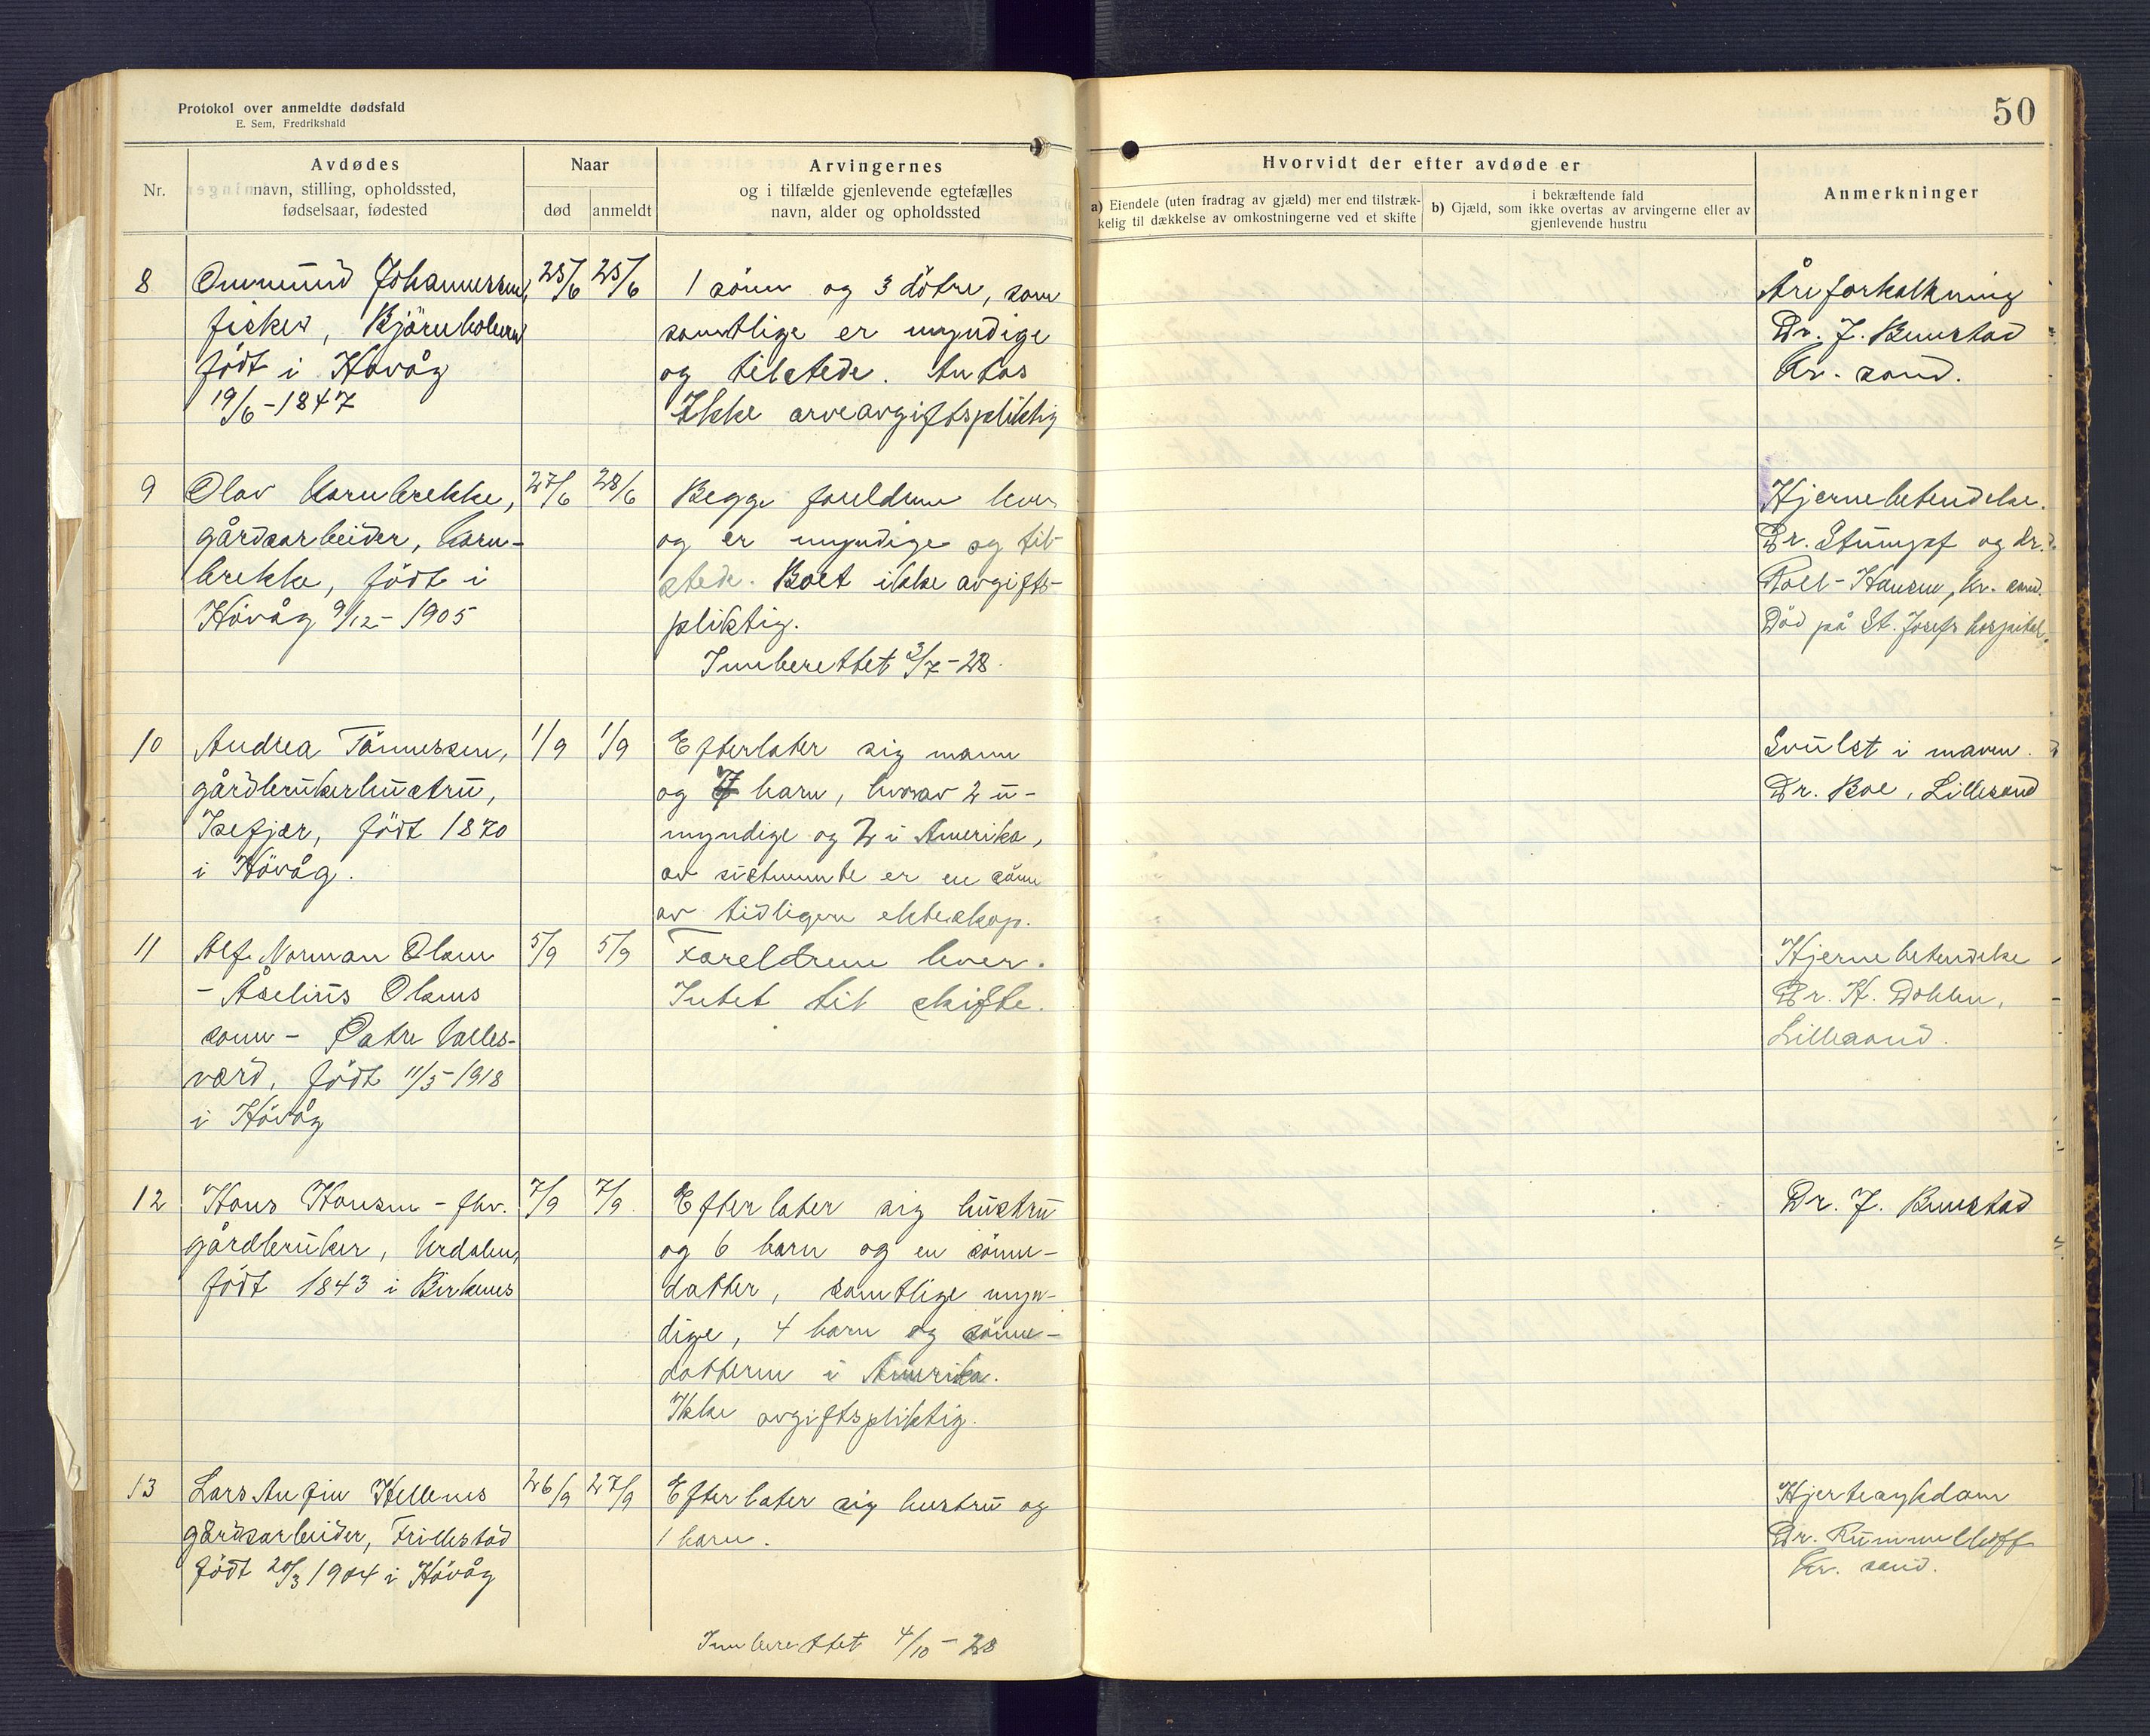 Protokol over anmeldte dødsfald
E. Sem, Fredrikshald
50
Nr.
Avdødes
navn, stilling, opholdssted,
fødselsaar, fødested
Naar
død
anmeldt
Arvingernes
og i tilfælde gjenlevende egtefælles
navn, alder og opholdssted
Hvorvidt der efter avdøde er
a) Eiendele (uten fradrag av gjæld) mer end tilstræk-
kelig til dækkelse av omkostningerne ved et skifte
i bekræftende fald
b) Gjæld, som ikke overtas av arvingerne eller av
gjenlevende hustru
Anmerkninger
8
Ommund Johannessen,
fisker, Björnholmen
födt i Hövåg
19/6-1847
25/6
25/6
1 sönn og 3 dötre, som
samtlige er myndige
og tilstede. Antas
Ikke arveavgiftspliktig
Åreforkalkning
Dr. J. Buustad
Kr. sand.
9
Olav Kornbrekke,
gårdsarbeider, Korn-
brekke, födt i
Hövåg 9/12-1905
27/6
28/6
Begge foreldrene lever
og er myndige og til-
stede. Boet ikke avgifts-
pliktig.
Innberettet 3/7-28.
Hjernebetendelse.
Dr. Stumpf og dr.
Roll-Hansen, Kr. sand.
Död på St. Josefs hospital.
10
Andrea Tönnessen,
gårdbrukerhustru,
Isefjær, födt 1870
i Hövåg.
1/9
1/9
Efterlater sig mann
og 7 barn, hvorav 2 u-
myndige og 2 i Amerika,
av sistnevnte er en sönn
av tidligere ekteskap.
Svulst i maven.
Dr. Boe, Lillesand
11
Alf Norman Olsen
- Åselius Olsens
sönn - Östre Valles-
verd, födt 11/5-1918
i Hövåg
5/9
5/9
Foreldrene lever.
Intet til skifte.
Hjernebetendelse
Dr. H. Dahlen,
Lillesand.
12
Hans Hansen - fhv.
gårdbruker, Urdalen,
födt 1843 i Birkenes
7/9
7/9.
Efterlater sig hustru
og 6 barn og en sönne-
datter, samtlige myn-
dige, 4 barn og sönne-
datteren i Amerika.
Ikke avgiftspliktig.
Dr. J. Buustad
13
Lars Anfin Hellenes
gårdsarbeider, Frillestad
födt 20/3 1904 i Hövåg
26/9
27/9
Efterlater sig hustru og
1 barn.
Hjertesykdom
Dr. Rummelhoff
Kr. sand.
Innberettet 4/10-28